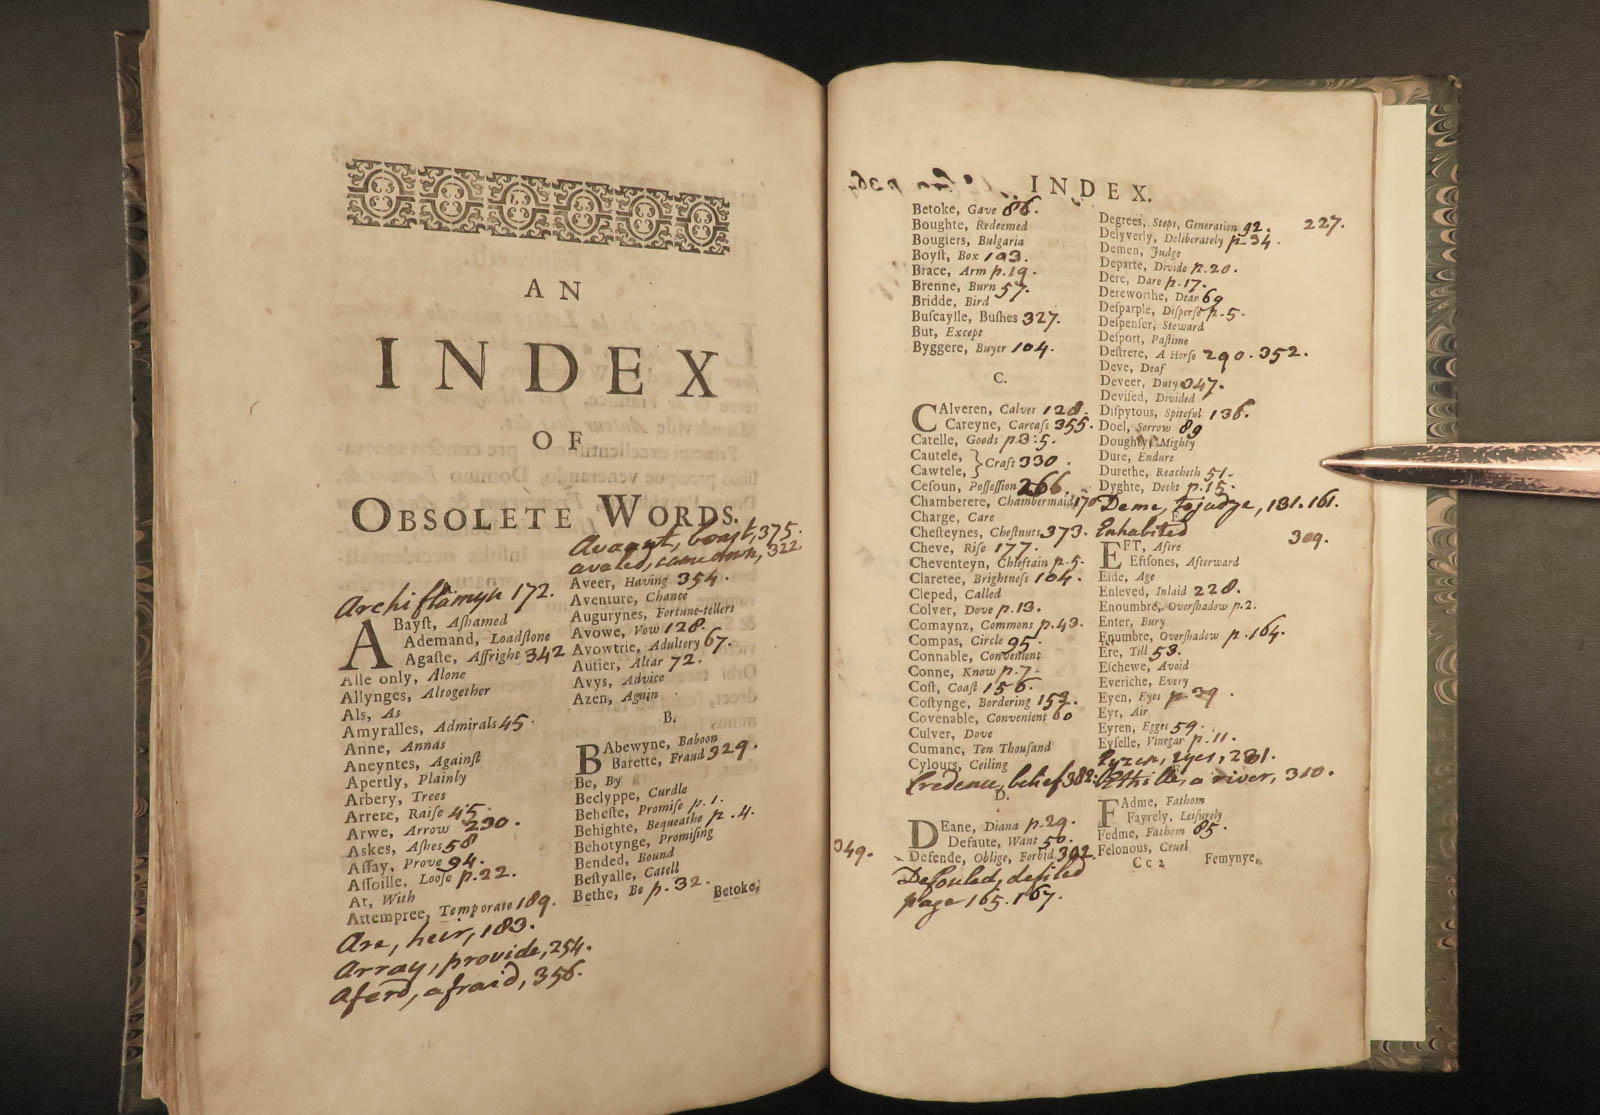 AN
INDEX
OF
OBSOLETE WORDS.
Archiflamyn 172.
ABayſt, Aſhamed
Ademand, Loadſtone
Agaſte, Affright 342
Alle only, Alone
Allynges, Altogether
Als, As
Amyralles, Admirals 45.
Anne, Annas
Aneyntes, Againſt
Apertly, Plainly
Arbery, Trees
Arrere, Raiſe 45.
Arwe, Arrow 230.
Askes, Aſhes 58
Aſſay, Prove 94.
Aſſoille, Looſe p. 22.
At, With
Attempree, Temporate 189.
Are, heir, 183.
Array, provide, 254.
Aferd, afraid, 356.
Avaunt, boast, 375.
avaled, came down, 322
Aveer, Having 354.
Aventure, Chance
Augurynes, Fortune-tellers
Avowe, Vow 128.
Avowtrie, Adultery 67.
Autier, Altar 72.
Avys, Advice
Azen, Again
B.
BAbewyne, Baboon
Barette, Fraud 329.
Be, By
Beclyppe, Curdle
Beheſte, Promiſe p. 1.
Behighte, Bequeathe p. 4.
Behotynge, Promiſing
Bended, Bound
Beſtyalle, Catell
Bethe, Be p. 32.
Betoke,
INDEX.
Betoke, Gave 86.
Boughte, Redeemed
Bougiers, Bulgaria
Boyſt, Box 103.
Brace, Arm p. 19.
Brenne, Burn 57.
Bridde, Bird
Buſcaylle, Buſhes 327.
But, Except
Byggere, Buyer 104.
C.
CAlveren, Calves 128.
Careyne, Carcaſs 355.
Catelle, Goods p. 3: 5.
Cautele,
Cawtele, } Craft 330.
Ceſoun, Poſſeſſion 266.
Chamberere, Chambermaid 170
Charge, Care
Cheſteynes, Cheſtnuts 373.
Cheve, Riſe 177.
Cheventeyn, Chieftain p. 5.
Claretee, Brightneſs 104.
Cleped, Called
Colver, Dove p. 13.
Comaynz, Commons p. 43.
Compas, Circle 95.
Connable, Convenient
Conne, Know p. 7.
Coſt, Coaſt 156.
Coſtynge, Bordering 152.
Covenable, Convenient 60
Culver, Dove
Cumanc, Ten Thouſand
Cylours, Ceiling
Credence, belief 382.
D.
DEane, Diana p. 29.
Defaute, Want 50.
349. Defende, Oblige, Forbid 302.
Defouled, defiled
page 165. 167.
Degrees, Steps, Generation 92. 227.
Delyverly, Deliberately p. 34.
Demen, Judge
Departe, Divide p. 20.
Dere, Dare p. 17.
Dereworthe, Dear 69
Deſparple, Diſperſe p. 5.
Deſpenſer, Steward
Deſport, Paſtime
Deſtrere, A Horſe 290. 352.
Deve, Deaf
Deveer, Duty 347.
Deviſed, Divided
Diſpytous, Spiteful 136.
Doel, Sorrow 89
Doughty, Mighty
Dure, Endure
Durethe, Reacheth 51.
Dyghte, Deckt p. 15.
Deme, to judge, 131. 161.
Enhabited 309.
EFT, After
Eftſones, Afterward
Elde, Age
Enleved, Inlaid 228.
Enoumbre, Overſhadow p. 2.
Enter, Bury
Enumbre, Overſhadow p. 164.
Ere, Till 53.
Eſchewe, Avoid
Everiche, Every
Eyen, Eyes p. 39.
Eyr, Air
Eyren, Egges 59.
Eyſelle, Vinegar p. 11.
Eyzen, eyes, 281.
Ethille, a river, 310.
FAdme, Fathom
Fayrely, Leiſurely
Fedme, Fathom 85.
Felonous, Cruel
Cc 2 Femynye,